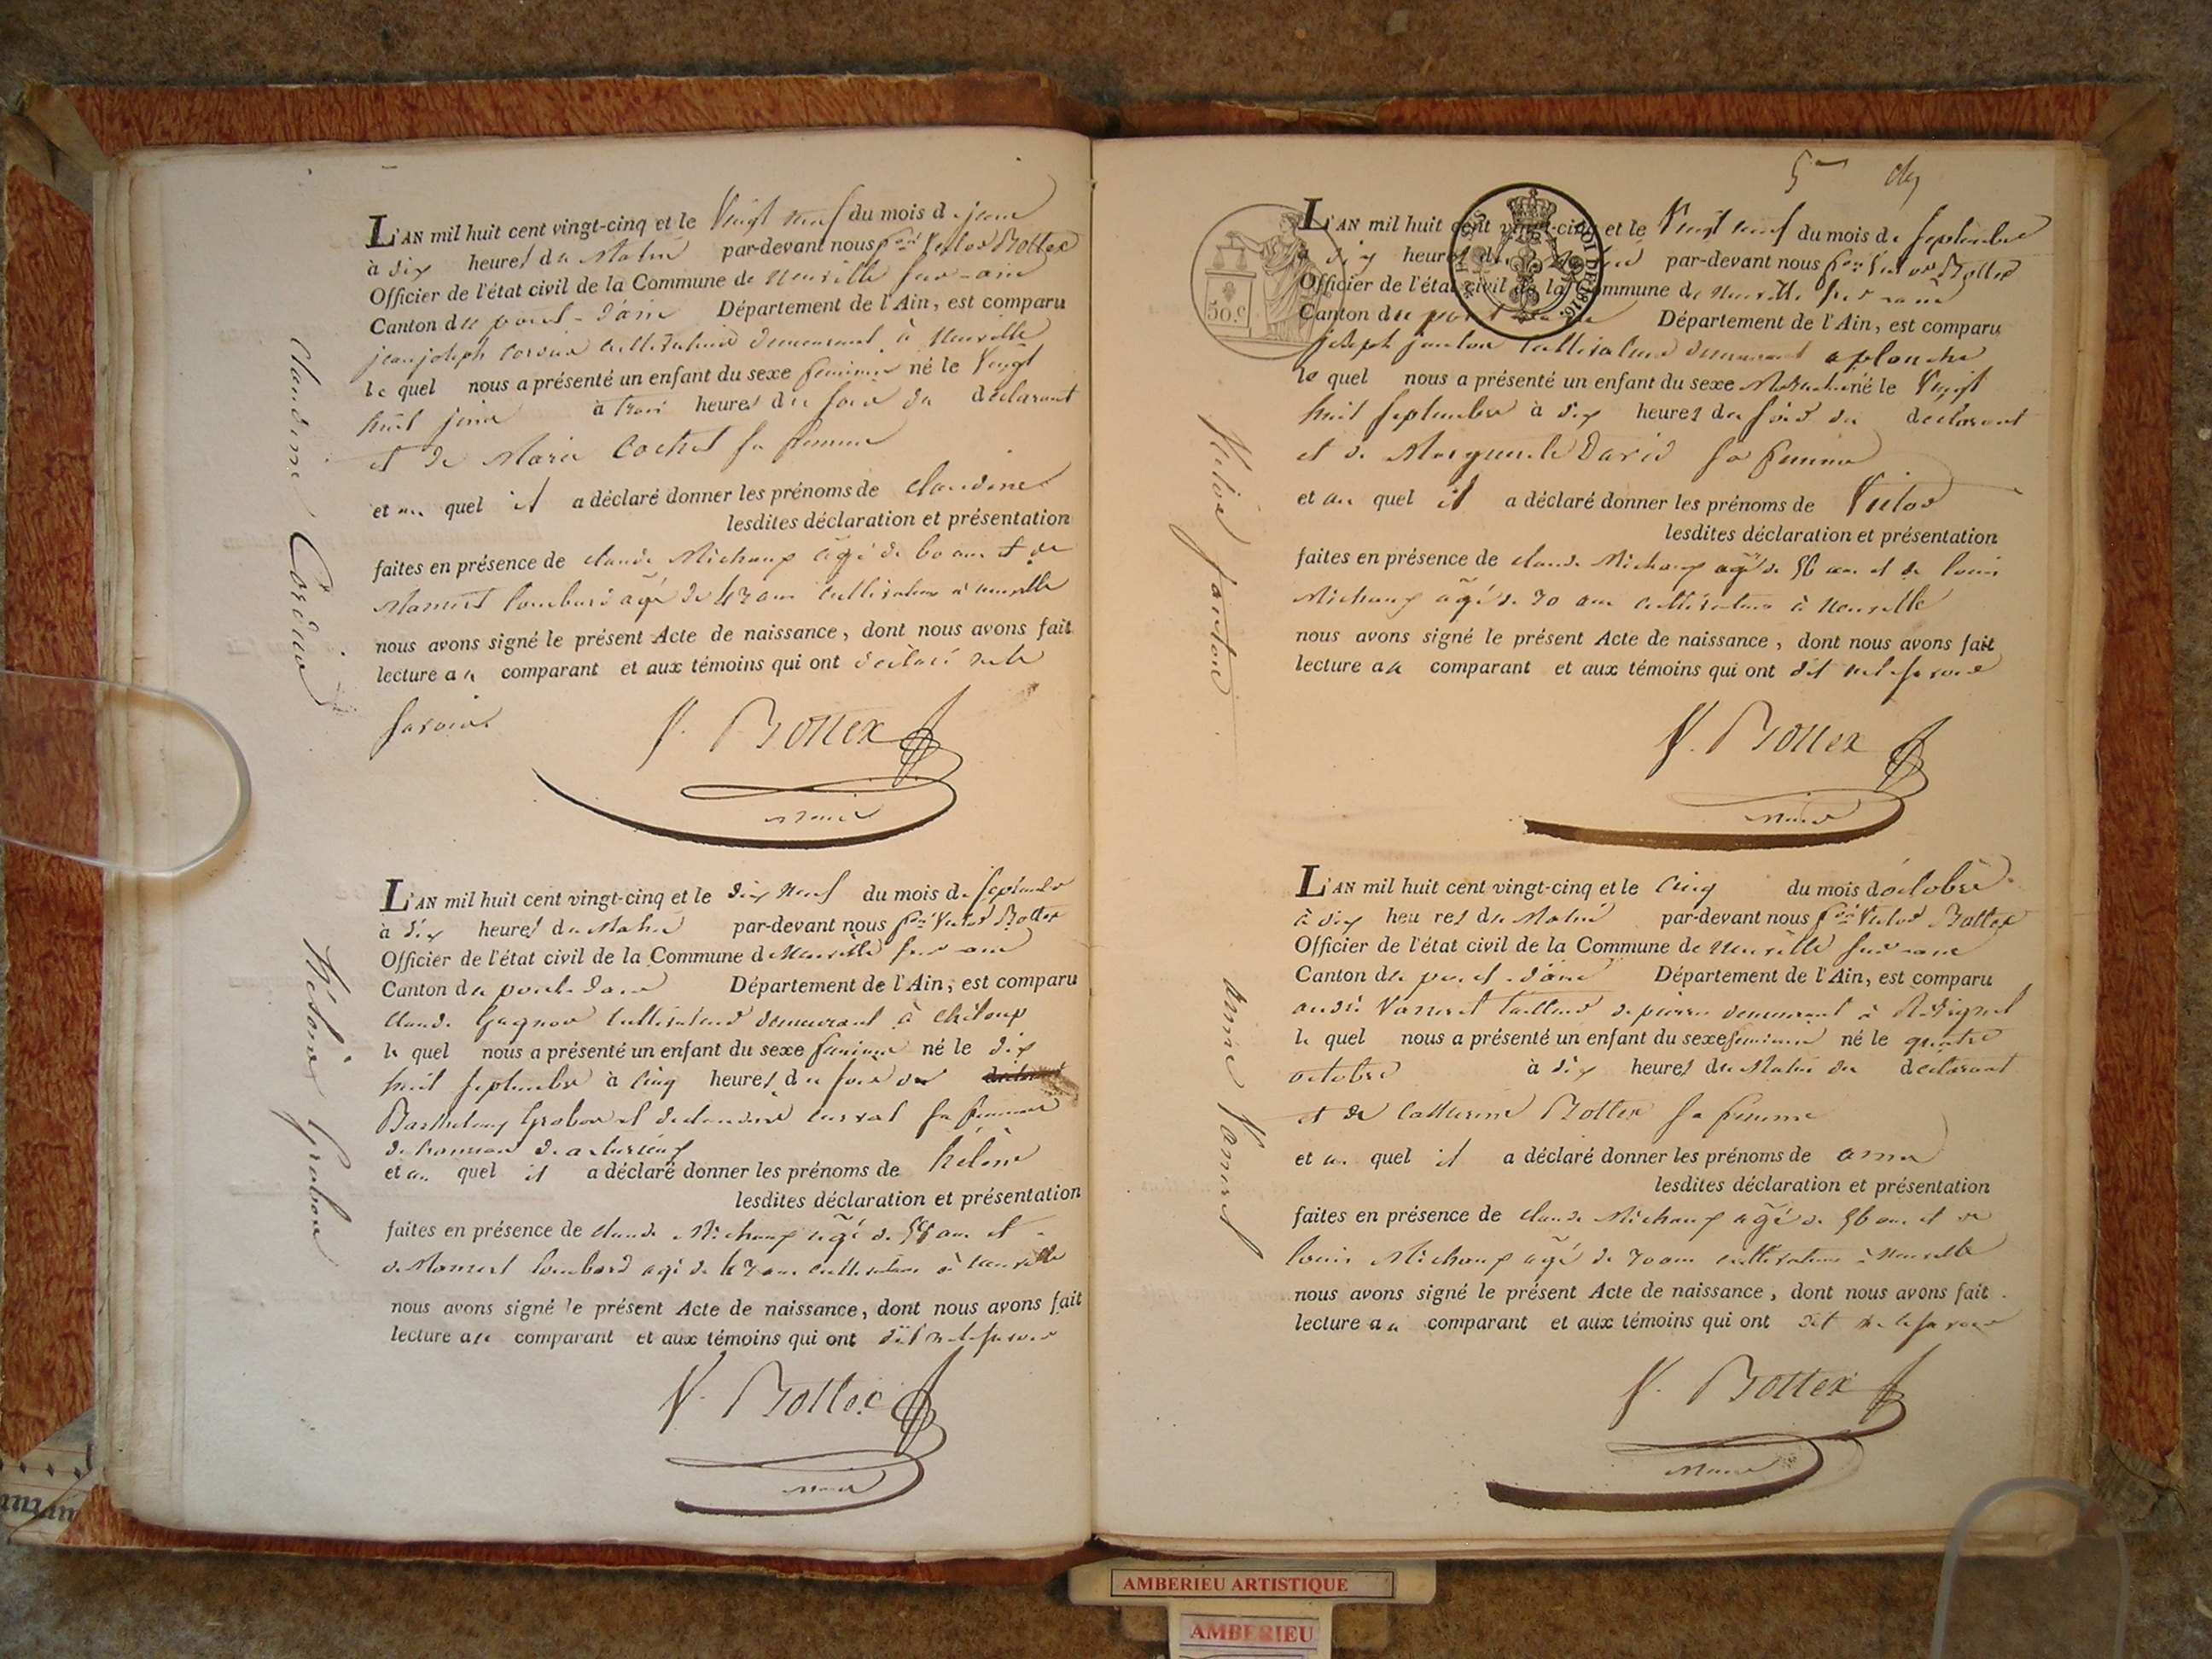 L'AN mil huit cent vingt-cinq et le Vingt neuf du mois de juin
à dix heures du Matin par-devant nous Victor Bottex
Officier de l'état civil de la Commune de neuville sur-ain
Canton du pont-d'ain Département de l'Ain, est comparu
jean joseph cultivateur demeurant à Neuville
le quel nous a présenté un enfant du sexe feminin né le Vingt
huit juin à trois heures du soir du déclarant
et de Marie Cochet sa femme
et au quel il a déclaré donner les prénoms de Claudine
lesdites déclaration et présentation
faites en présence de claude Michaux agé de 60 ans et de
Mamert lombard agé de 43 ans cultivateurs à neuville
nous avons signé le présent Acte de naissance, dont nous avons fait
lecture au comparant et aux témoins qui ont déclaré ne le
savoir
V. Bottex
maire
Claudine
L'AN mil huit cent vingt-cinq et le dix neuf du mois de septembre
à dix heures du Matin par-devant nous Victor Bottex
Officier de l'état civil de la Commune de Neuville sur ain
Canton du pont-dain Département de l'Ain, est comparu
claude cultivateur demeurant à chiloup
le quel nous a présenté un enfant du sexe feminin né le dix
huit septembre à cinq heures du soir de
Barthelemy Grabou et de claudine sa femme
et au quel il a déclaré donner les prénoms de hélène
lesdites déclaration et présentation
faites en présence de claude Michaux agé de ans et
de Mamert lombard agé de 43 ans cultivateurs à neuville
nous avons signé le présent Acte de naissance, dont nous avons fait
lecture au comparant et aux témoins qui ont dit ne le savoir
V. Bottex
maire
hélène Grabou
5me
L'AN mil huit cent vingt-cinq et le Vingt neuf du mois de septembre
à dix heures du matin par-devant nous Victor Bottex
Officier de l'état civil de la Commune de neuville sur ain
Canton du pont Département de l'Ain, est comparu
joseph janton cultivateur demeurant a planche
le quel nous a présenté un enfant du sexe Masculin né le Vingt
huit septembre à dix heures du soir du declarant
et de Marguerite David sa femme
et au quel il a déclaré donner les prénoms de Victor
lesdites déclaration et présentation
faites en présence de claude Michaux agé de 56 ans et de louis
Michaux agé de 30 ans cultivateurs à Neuville
nous avons signé le présent Acte de naissance, dont nous avons fait
lecture au comparant et aux témoins qui ont dit ne le savoir
V. Bottex
maire
Victor janton
50.c
ROI DE 1816
L'AN mil huit cent vingt-cinq et le cinq du mois d'octobre
à dix heures du Matin par-devant nous Victor Bottex
Officier de l'état civil de la Commune de Neuville sur-ain
Canton du pont-d'ain Département de l'Ain, est comparu
andré Vameret tailleur de pierre demeurant à
le quel nous a présenté un enfant du sexe feminin né le quatre
octobre à dix heures du Matin du declarant
et de Catherine Bottex sa femme
et au quel il a déclaré donner les prénoms de anne
lesdites déclaration et présentation
faites en présence de claude Michaux agé de 56 ans et de
louis Michaux agé de 30 ans cultivateurs à Neuville
nous avons signé le présent Acte de naissance, dont nous avons fait
lecture au comparant et aux témoins qui ont dit ne le savoir
V. Bottex
maire
anne Vameret
AMBERIEU ARTISTIQUE
AMBERIEU